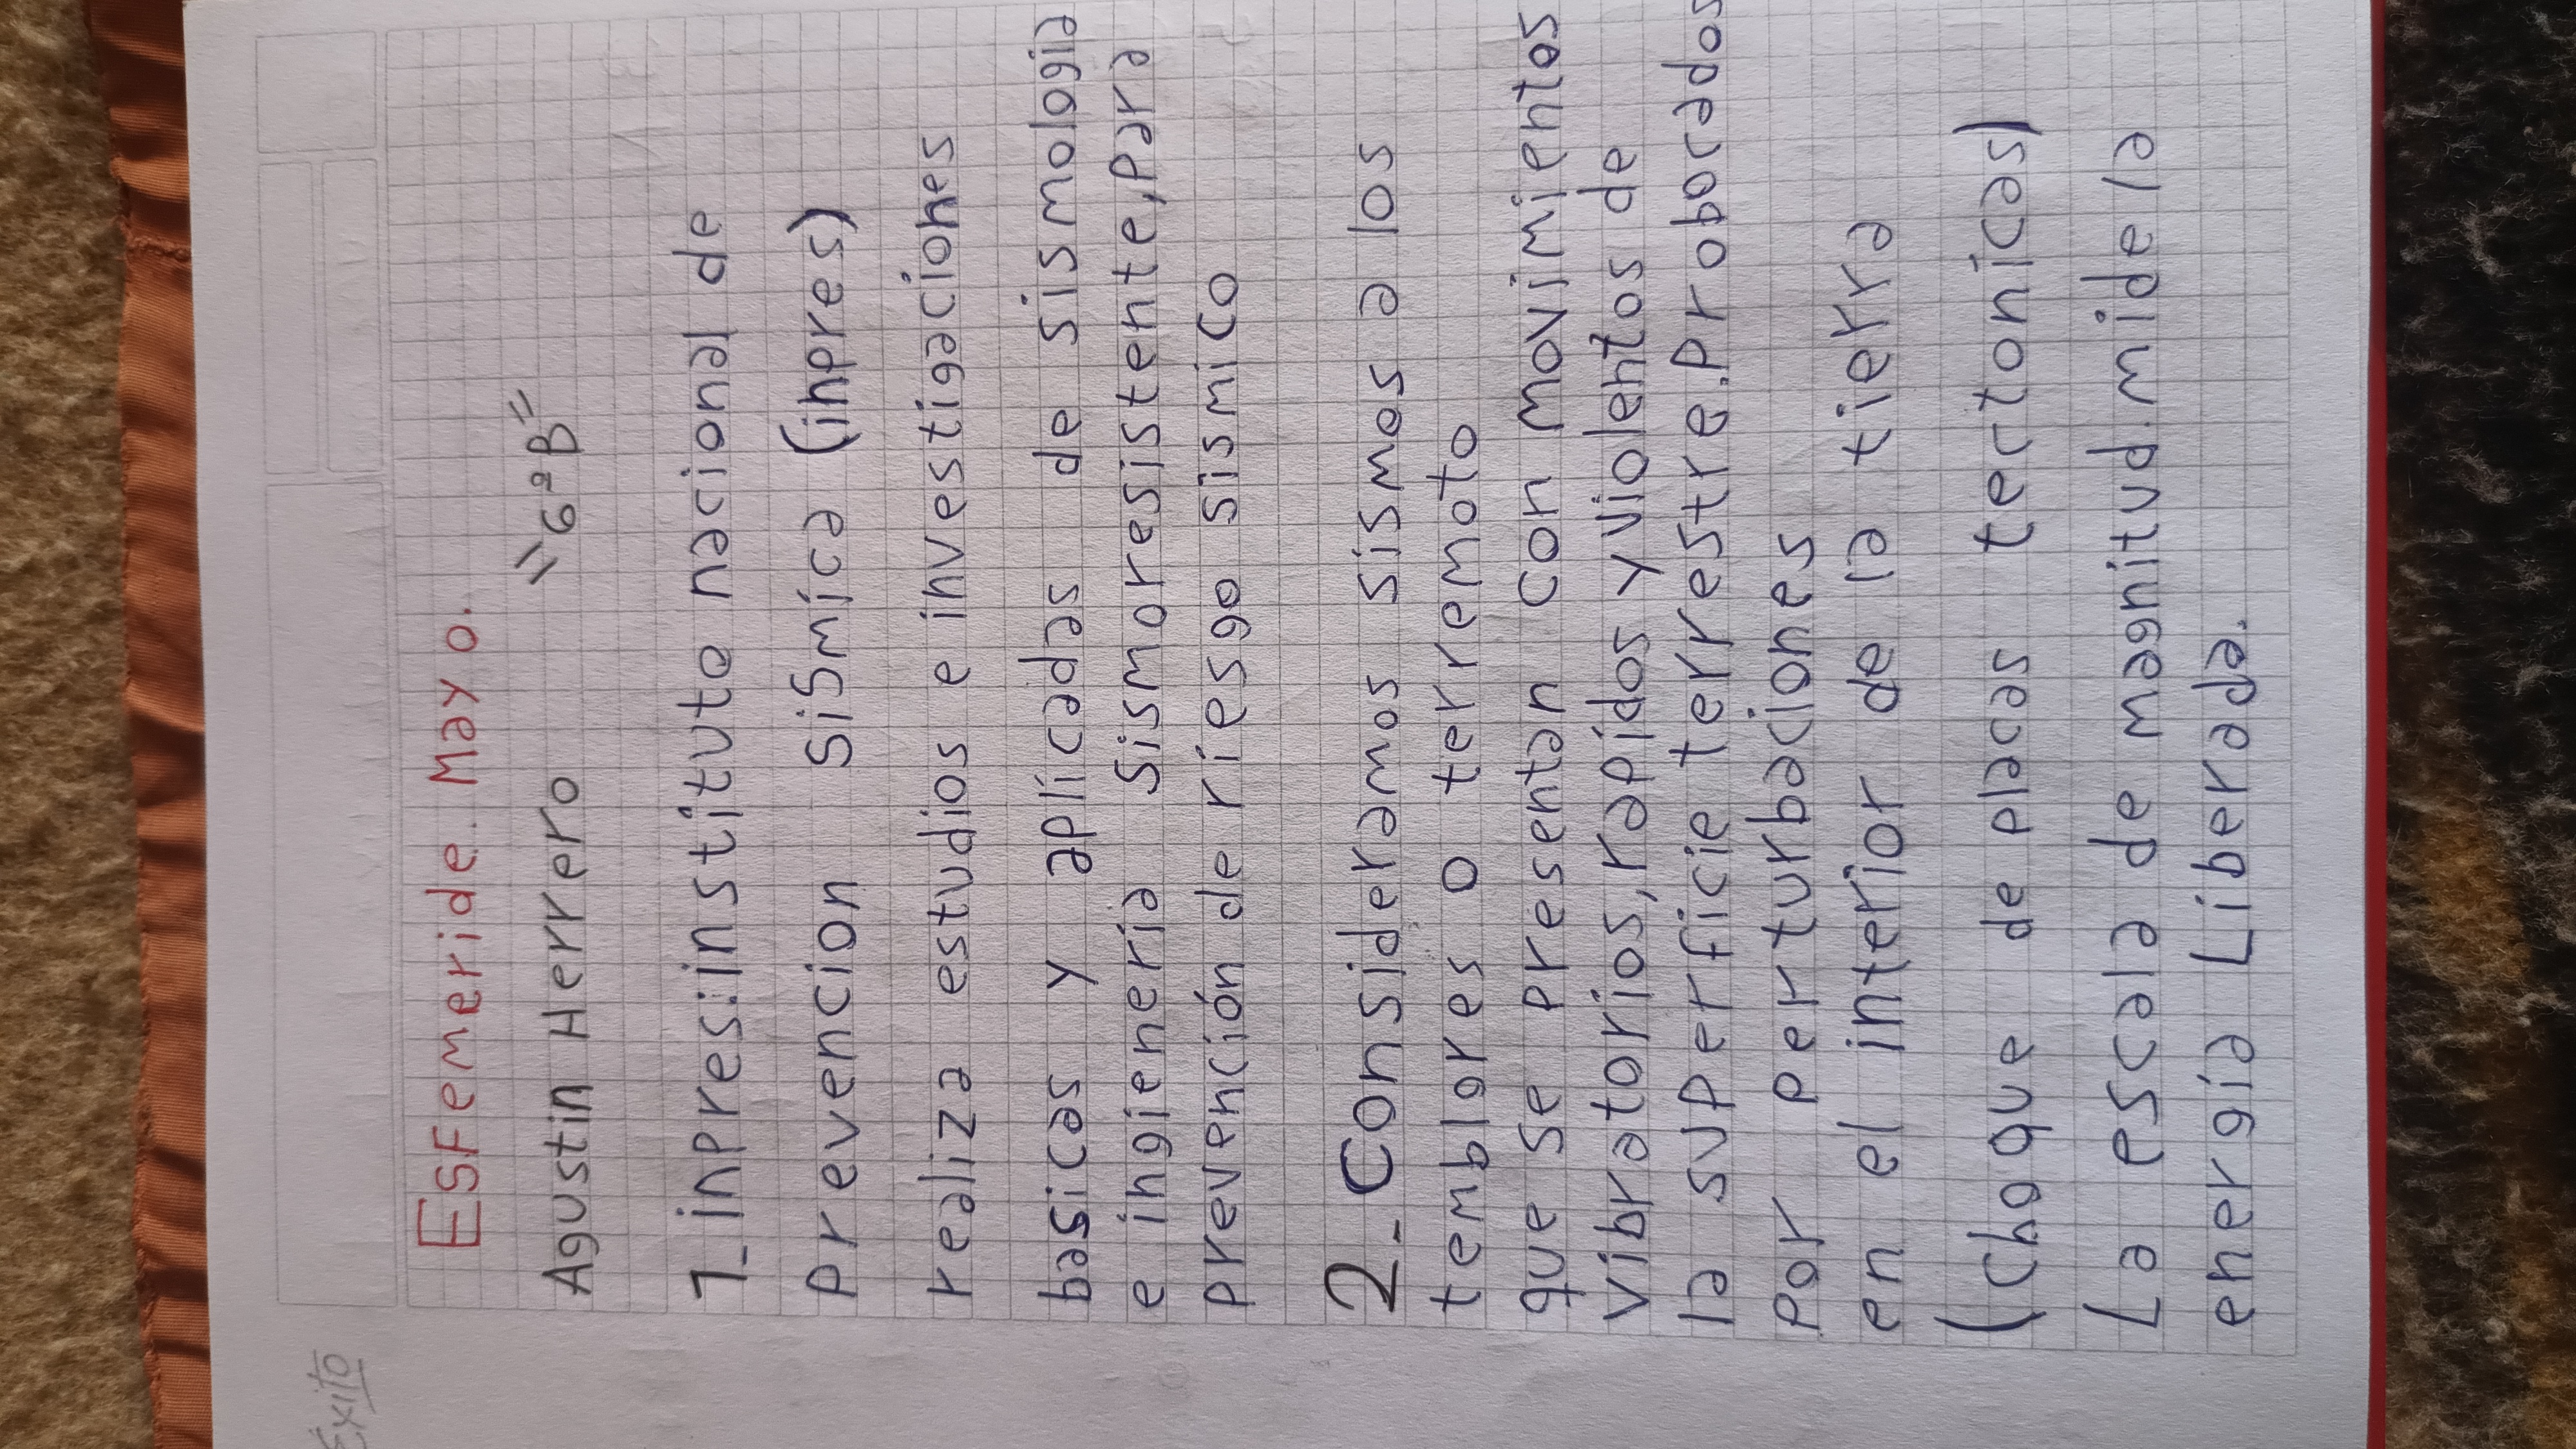 Éxito
Esfemeride. Mayo.
Agustin Herrero "6ºB"
1_inpres:instituto nacional de
Prevencion Sismica (inpres)
realiza estudios e investigaciones
basicas y aplicadas de sismologia
e ingieneria Sismoresistente,para
prevención de riesgo sismico
2_Consideramos sismos a los
temblores o terremoto
que se presentan con movimientos
vibratorios,rapidos y violentos de
la superficie terrestre.Probocados
por perturbaciones
en el interior de la tierra
(choque de placas tectonicas)
La escala de magnitud.mide la
energia Liberada.